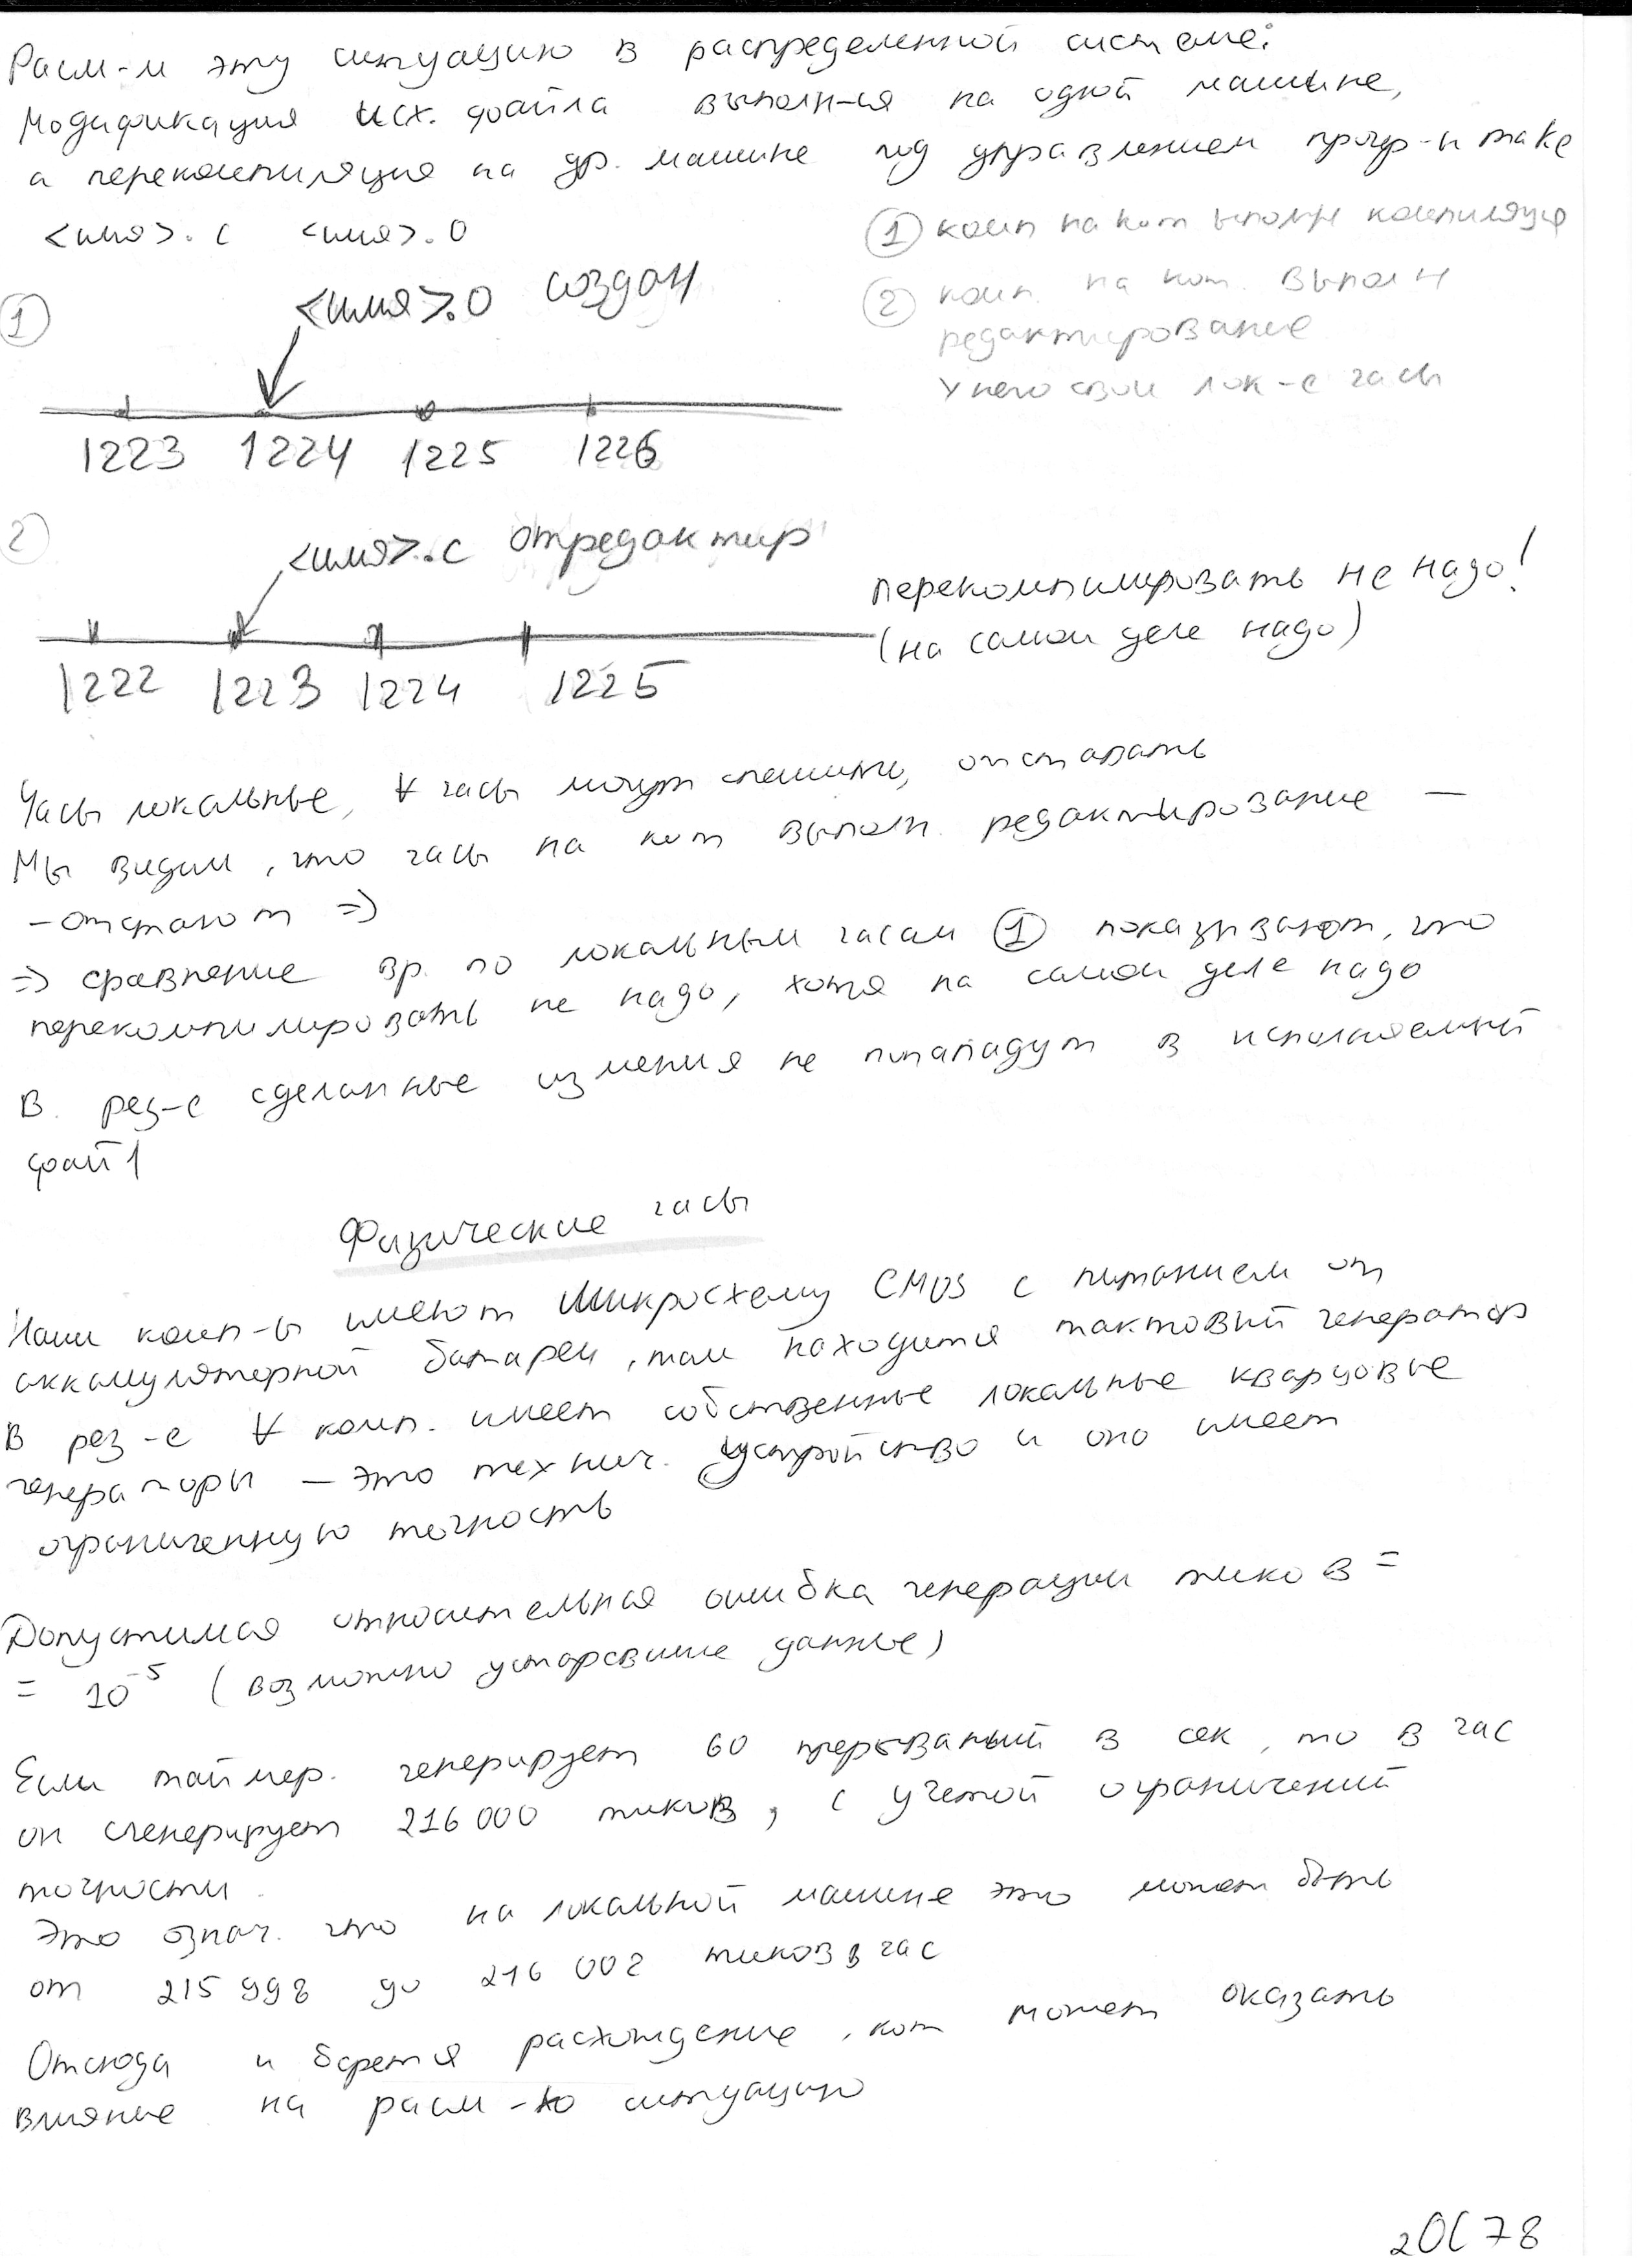 Расм-м эту ситуацию в распределенной системе:
Модификация исх. файла выполн-ся на одной машине,
а перекомпиляция на др. машине под управлением прогр-ы make
<имя>.c <имя>.o
① комп на кот выполн компиляция
② комп. на кот. выполн
редактирование
У него свои лок-е часы
①
<имя>.o создан
1223 1224 1225 1226
②
<имя>.c отредактир
1222 1223 1224 1225
перекомпилировать не надо!
(на самом деле надо)
Часы локальные, ∀ часы могут спешить, отставать
Мы видим, что часы на кот выполн. редактирование —
- отстают ⇒
⇒ сравнение вр. по локальным часам ① показывают, что
перекомпилировать не надо, хотя на самом деле надо
В рез-е сделанные изменения не попадут в исполняемый
файл
Физические часы
Наши комп-ы имеют микросхему CMOS с питанием от
аккумуляторной батареи, там находится тактовый генератор
В рез-е ∀ комп. имеет собственные локальные кварцовые
генераторы — это технич. устройство и оно имеет
ограниченную точность
Допустимая относительная ошибка генерации тиков =
= 10⁻⁵ (возможно устаревшие данные)
Если таймер. генерирует 60 прерываний в сек, то в час
он сгенерирует 216 000 тиков, с учетой ограничений
точности.
Это означ. что на локальной машине это может быть
от 215 998 до 216 002 тиков в час
Отсюда и берется расхождение, кот может оказать
влияние на расм-ю ситуацию
2ОС78